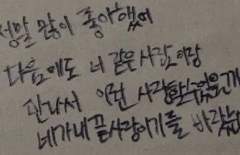 정말 많이 좋아했어
다음에도 너 같은 사람이랑
만나서 이런 사랑할 수 있을게
네가 내 끝사랑이기를 바랐는